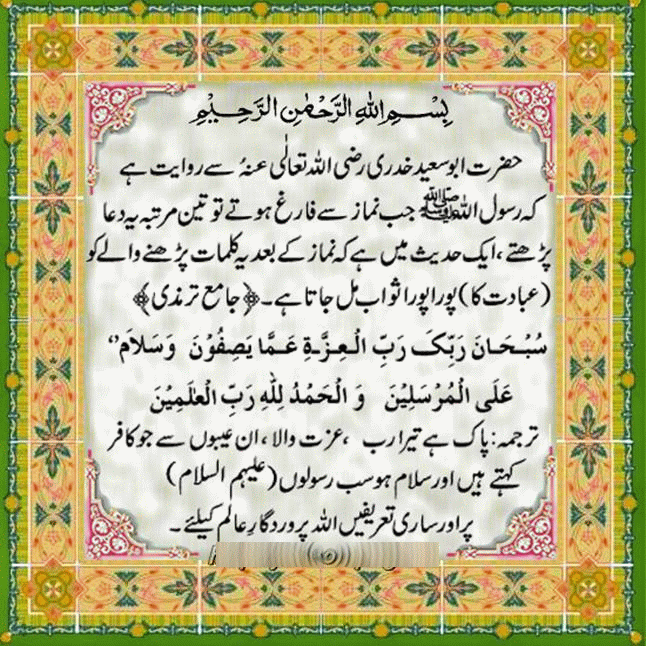 بِسْمِ اللهِ الرَّحْمٰنِ الرَّحِيْمِ
حضرت ابوسعید خدری رضی اللہ تعالٰی عنہُ سے روایت ہے
کہ رسول اللہ ﷺ جب نماز سے فارغ ہوتے تو تین مرتبہ یہ دعا
پڑھتے، ایک حدیث میں ہے کہ نماز کے بعد یہ کلمات پڑھنے والے کو
(عبادت کا) پورا پورا ثواب مل جاتا ہے۔ ﴿جامع ترمذی﴾
سُبْحَانَ رَبِّکَ رَبِّ الْعِزَّةِ عَمَّا يَصِفُوْنَ وَسَلَامٌ
عَلَی الْمُرْسَلِيْنَ وَ الْحَمْدُ لِلّٰهِ رَبِّ الْعٰلَمِيْنَ
ترجمہ: پاک ہے تیرا رب ، عزت والا، ان عیبوں سے جو کافر
کہتے ہیں اور سلام ہو سب رسولوں (علیہم السلام)
پر اور ساری تعریفیں اللہ پروردگارِ عالم کیلئے۔